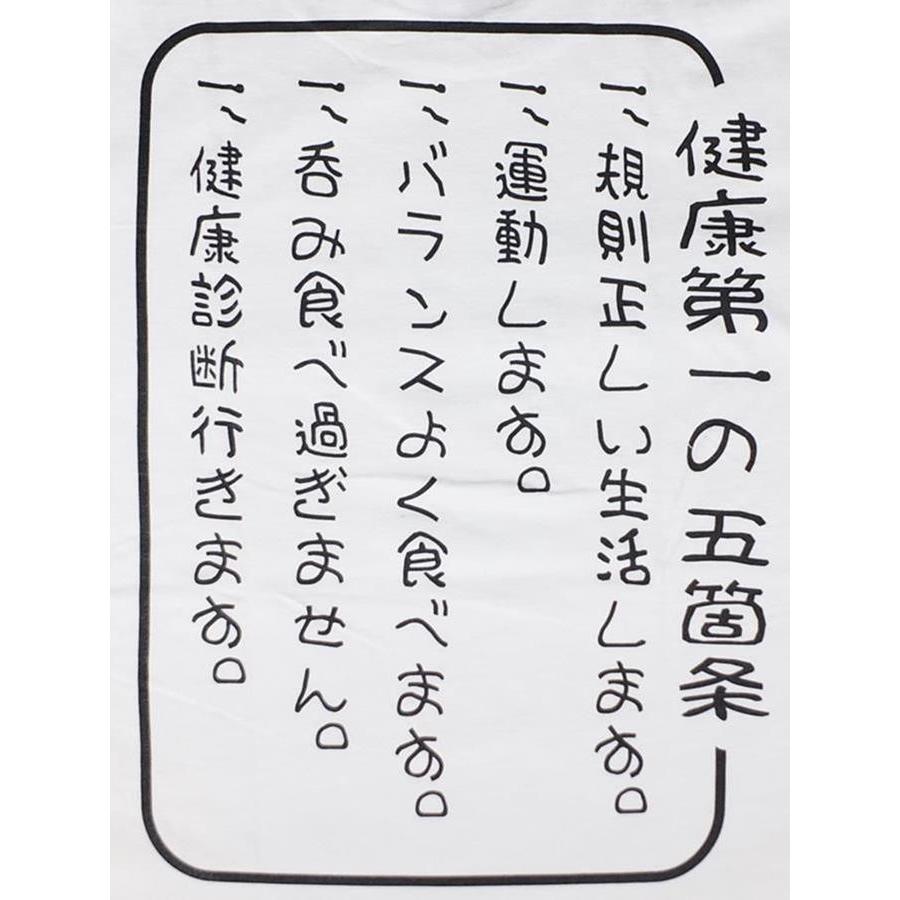 健康第一の五箇条
一、規則正しい生活します。
一、運動します。
一、バランスよく食べます。
一、呑み食べ過ぎません。
一、健康診断行きます。